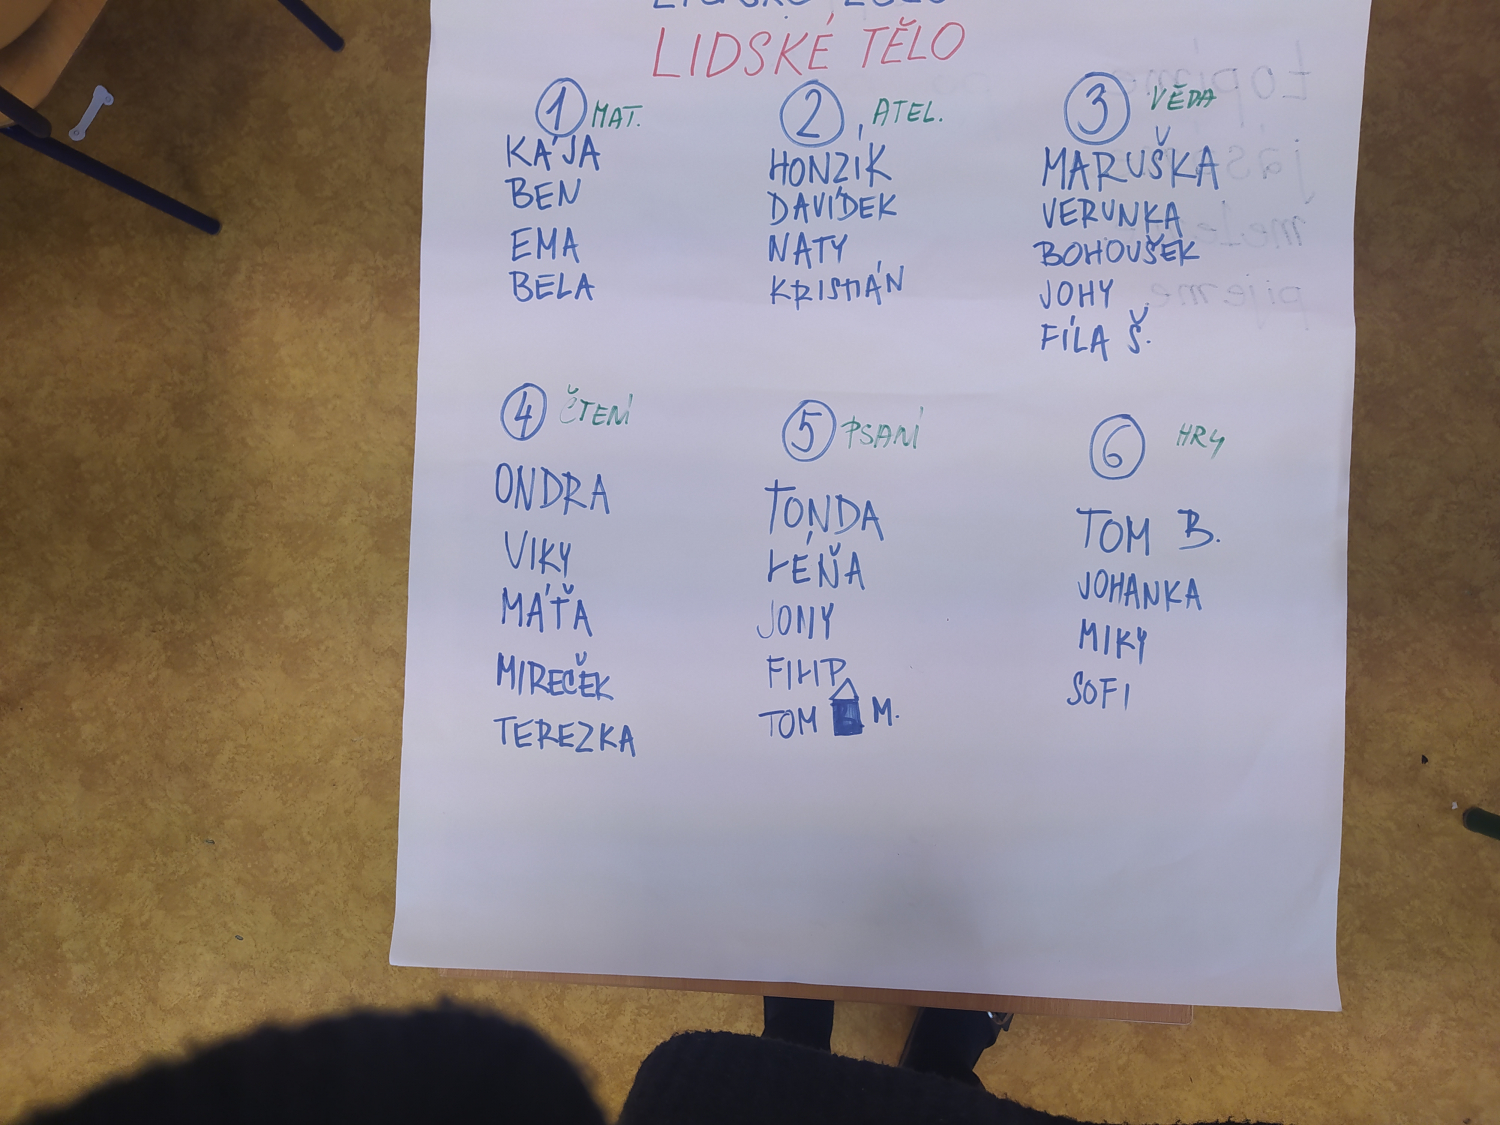 LIDSKÉ TĚLO
1 MAT.
KÁJA
BEN
EMA
BÉLA
2 ATEL.
HONZÍK
DAVÍDEK
NATY
KRISTIÁN
3 VĚDA
MARUŠKA
VERUNKA
BOHOUŠEK
JOHY
FÍLA Š.
4 ČTENÍ
ONDRA
VIKY
MÁŤA
MIREČEK
TEREZKA
5 PSANÍ
TONDA
LÉŇA
JONY
FILIP
TOM M.
6 HRY
TOM B.
JOHANKA
MIKY
SOFI